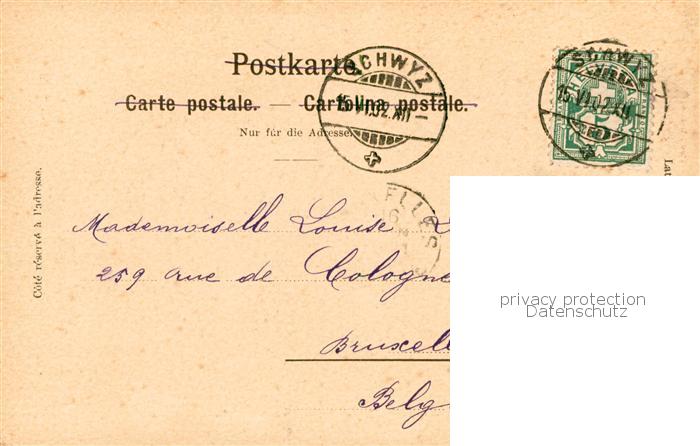 Postkarte.
Carte postale. — Cartolina postale.
Nur für die Adresse.
SCHWYZ
15.VI.02.XII
SCHWYZ
15.VI.02.XII
ELLES
Côté réservé à l'adresse.
Lat
Mademoiselle Louise
259 rue de Cologne
Bruxell
Belg
privacy protection
Datenschutz